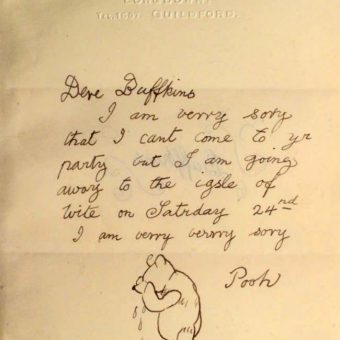 GUILDFORD.
Dere Buffkins
I am verry sory
that I cant come to yr
party but I am going
away to the igsle of
wite on Satrday 24nd
I am verry verrry sory
Pooh